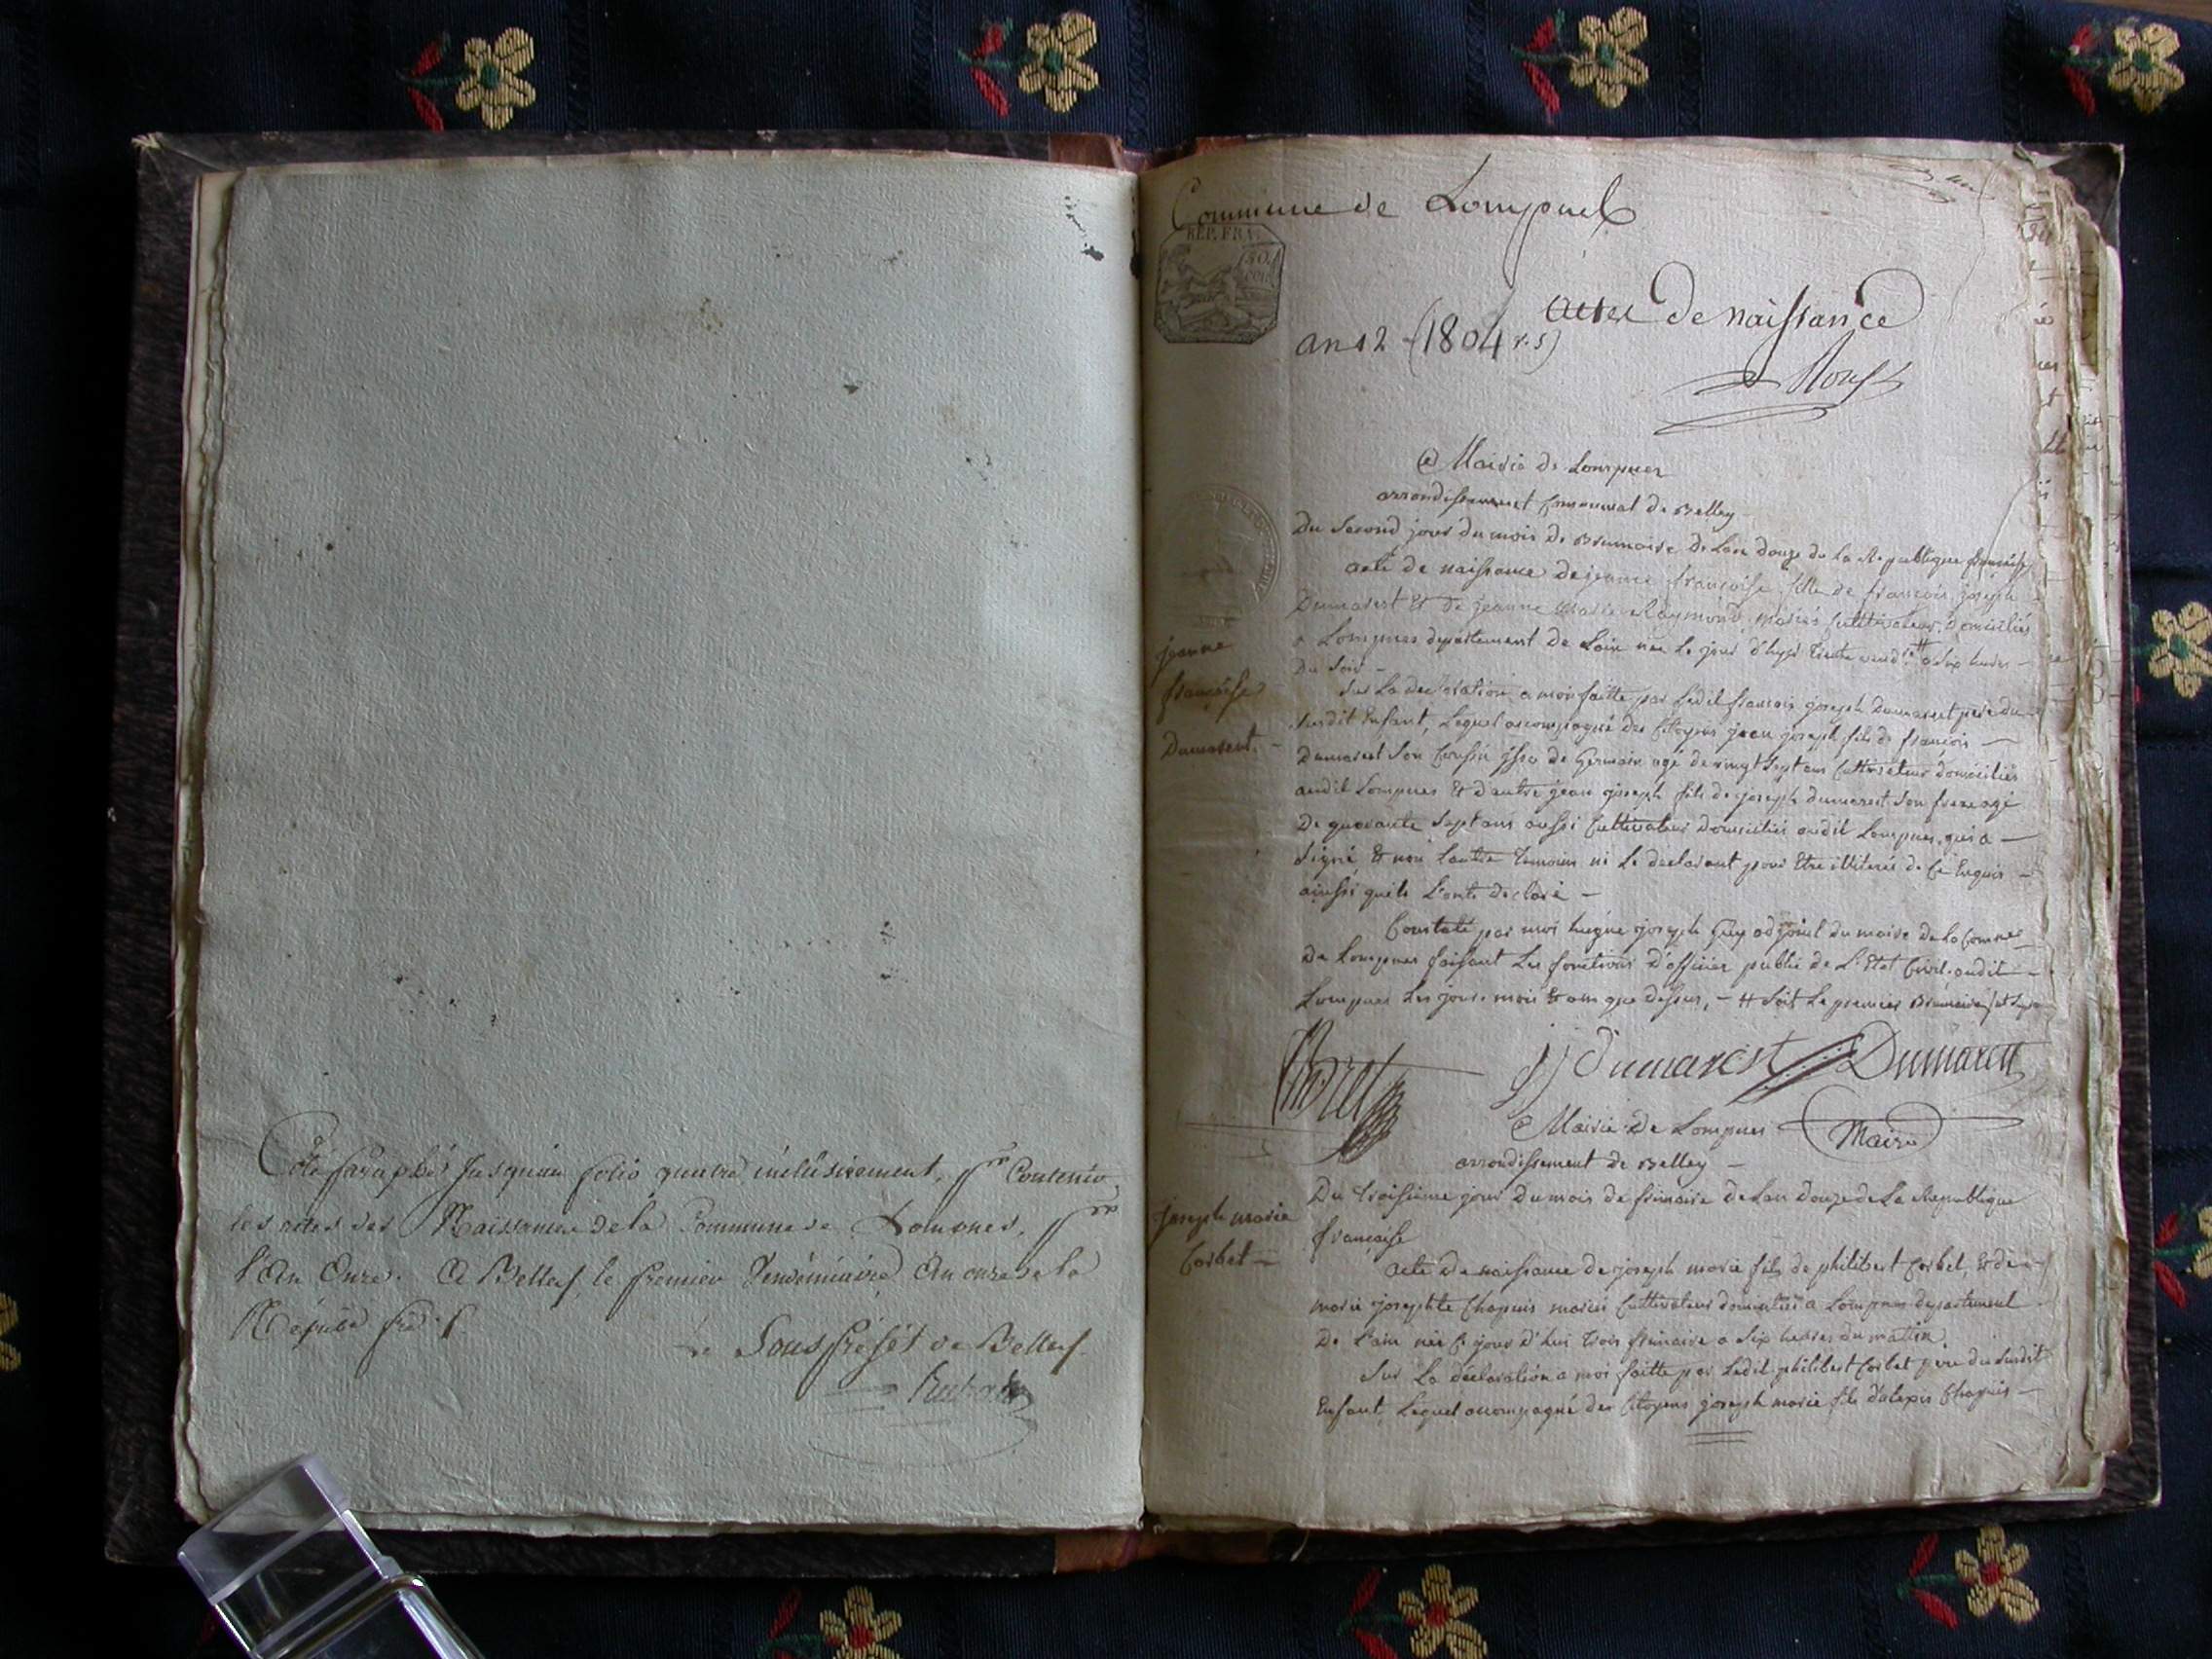 Coté paraphé jusqu'au folio quatre inclusivement, pr Contenir
les actes des Naissances de la Commune de Lompnes, pr
l'An Onze. A Belley le premier Vendémiaire An onze de la
Répub. fr.
Le Sous préfet de Belley
Commune de Lompnes
REP. FRA.
actes de naissance
an 12 (1804 v.s)
Mairie de Lompnes
arrondissement Communal de Belley
Du Second jour du mois de Brumaire de Lan douze de La Republique française
acte de naissance de jeanne françoise fille de francois joseph
Dumarest Et de jeanne marie Raymond mariés Cultivateurs domiciliés
a Lompnes departement de Lain nee le jour d'hyer trente vend.re # a Six heures
Du Soir
jeanne
françoise
Dumarest
Sur La declaration a moi faitte par Ledit francois joseph Dumarest pere du
Susdit Enfant, Lequel accompagné des Citoyens jean joseph fils de francois
Dumarest Son Coussin Issu de Germain agé de vingt Sept ans Cultivateur domiciliés
audit Lompnes Et d'autre jean joseph fils de joseph dumarest Son frere agé
De quarante Sept ans aussi Cultivateur domiciliés audit Lompnes, qui a
Signé Et non Lautre temoin ni Le declarant pour Etre illiterés de Ce Enquis
ainssi quils L'onts declaré
Constaté par moi joseph adjoint du maire de La Comne
De Lompnes faisant Les fonctions D'officier public de L'Etat Civil audit
Lompnes Les jour mois & an que dessus, - # Soit Le premier Brumaire
JJ Dumarest Dumarest
Maire
Mairie De Lompnes
arrondissement de Belley
Du troisieme jour Du mois de frimaire de Lan douze de La Republique
française
joseph marie
Corbet
acte De naissance de joseph marie fils de philibert Corbet, & de
marie josephte Chapuis mariés Cultivateurs domiciliés a Lompnes departement
De L'ain née Ce jour d'hui trois frimaire a Six heures du mattin
Sur La déclaration a moi faitte par Ledit philibert Corbet père du Susdit
Enfant, Lequel accompagné des Citoyens joseph marie fils d'alexis Chapuis